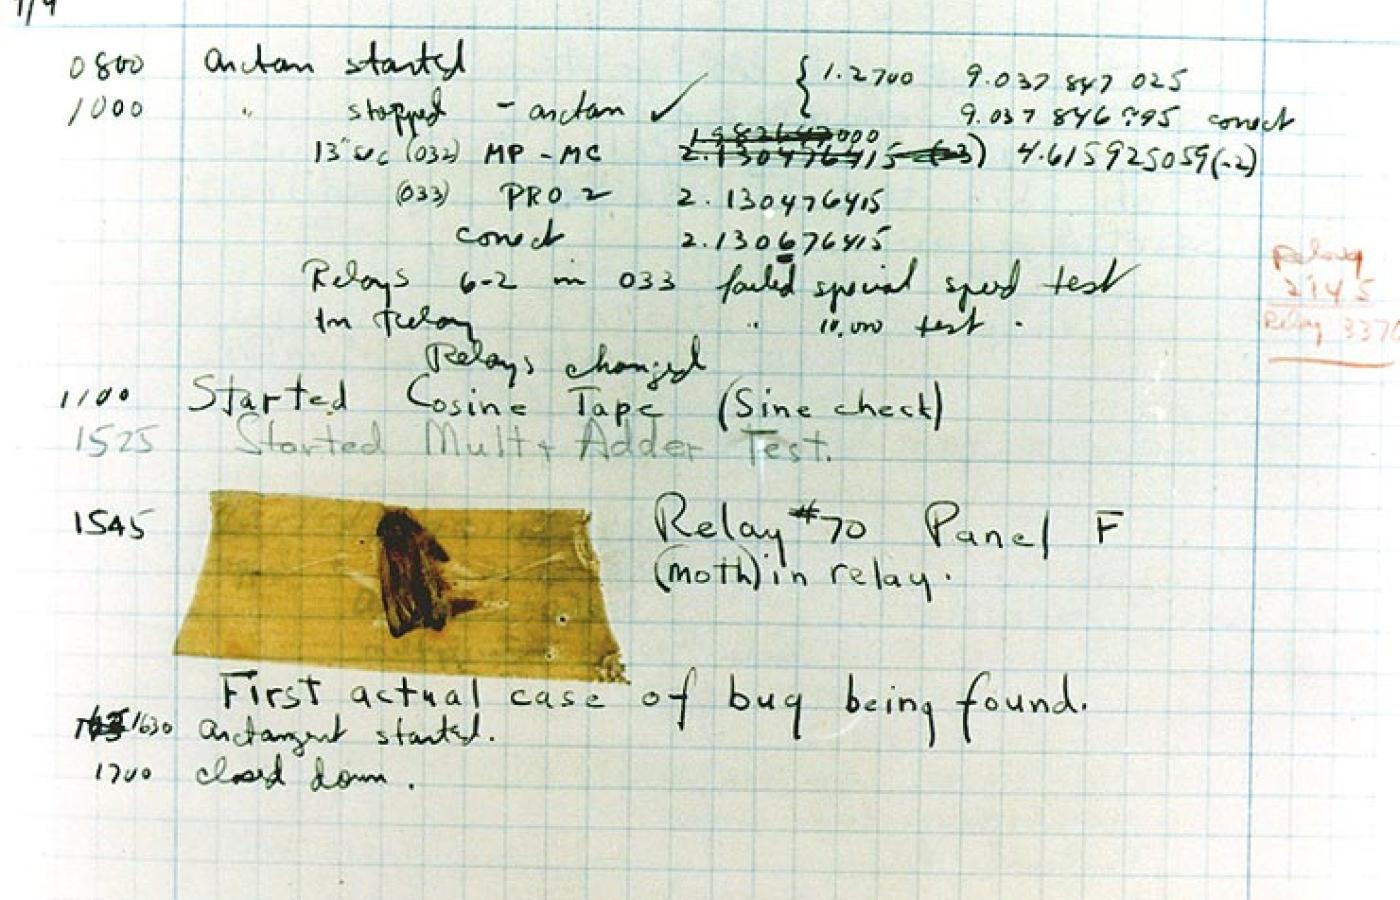 9/9
0800 Antan started { 1.2700 9.037 847 025
1000 " stopped - antan ✓ 9.037 846 995 conect
13" uc (032) MP - MC 2.130476415 (-3) 4.615925059(-2)
(033) PRO 2 2.130476415
conect 2.130676415
Relays 6-2 in 033 failed special speed test
In Relay " 10.000 test .
Relays changed
Relay
2145
Relay 3370
1100 Started Cosine Tape (Sine check)
1525 Started Mult + Adder Test.
1545 Relay #70 Panel F
(moth) in relay.
First actual case of bug being found.
1630 Antangent started.
1700 closed down.